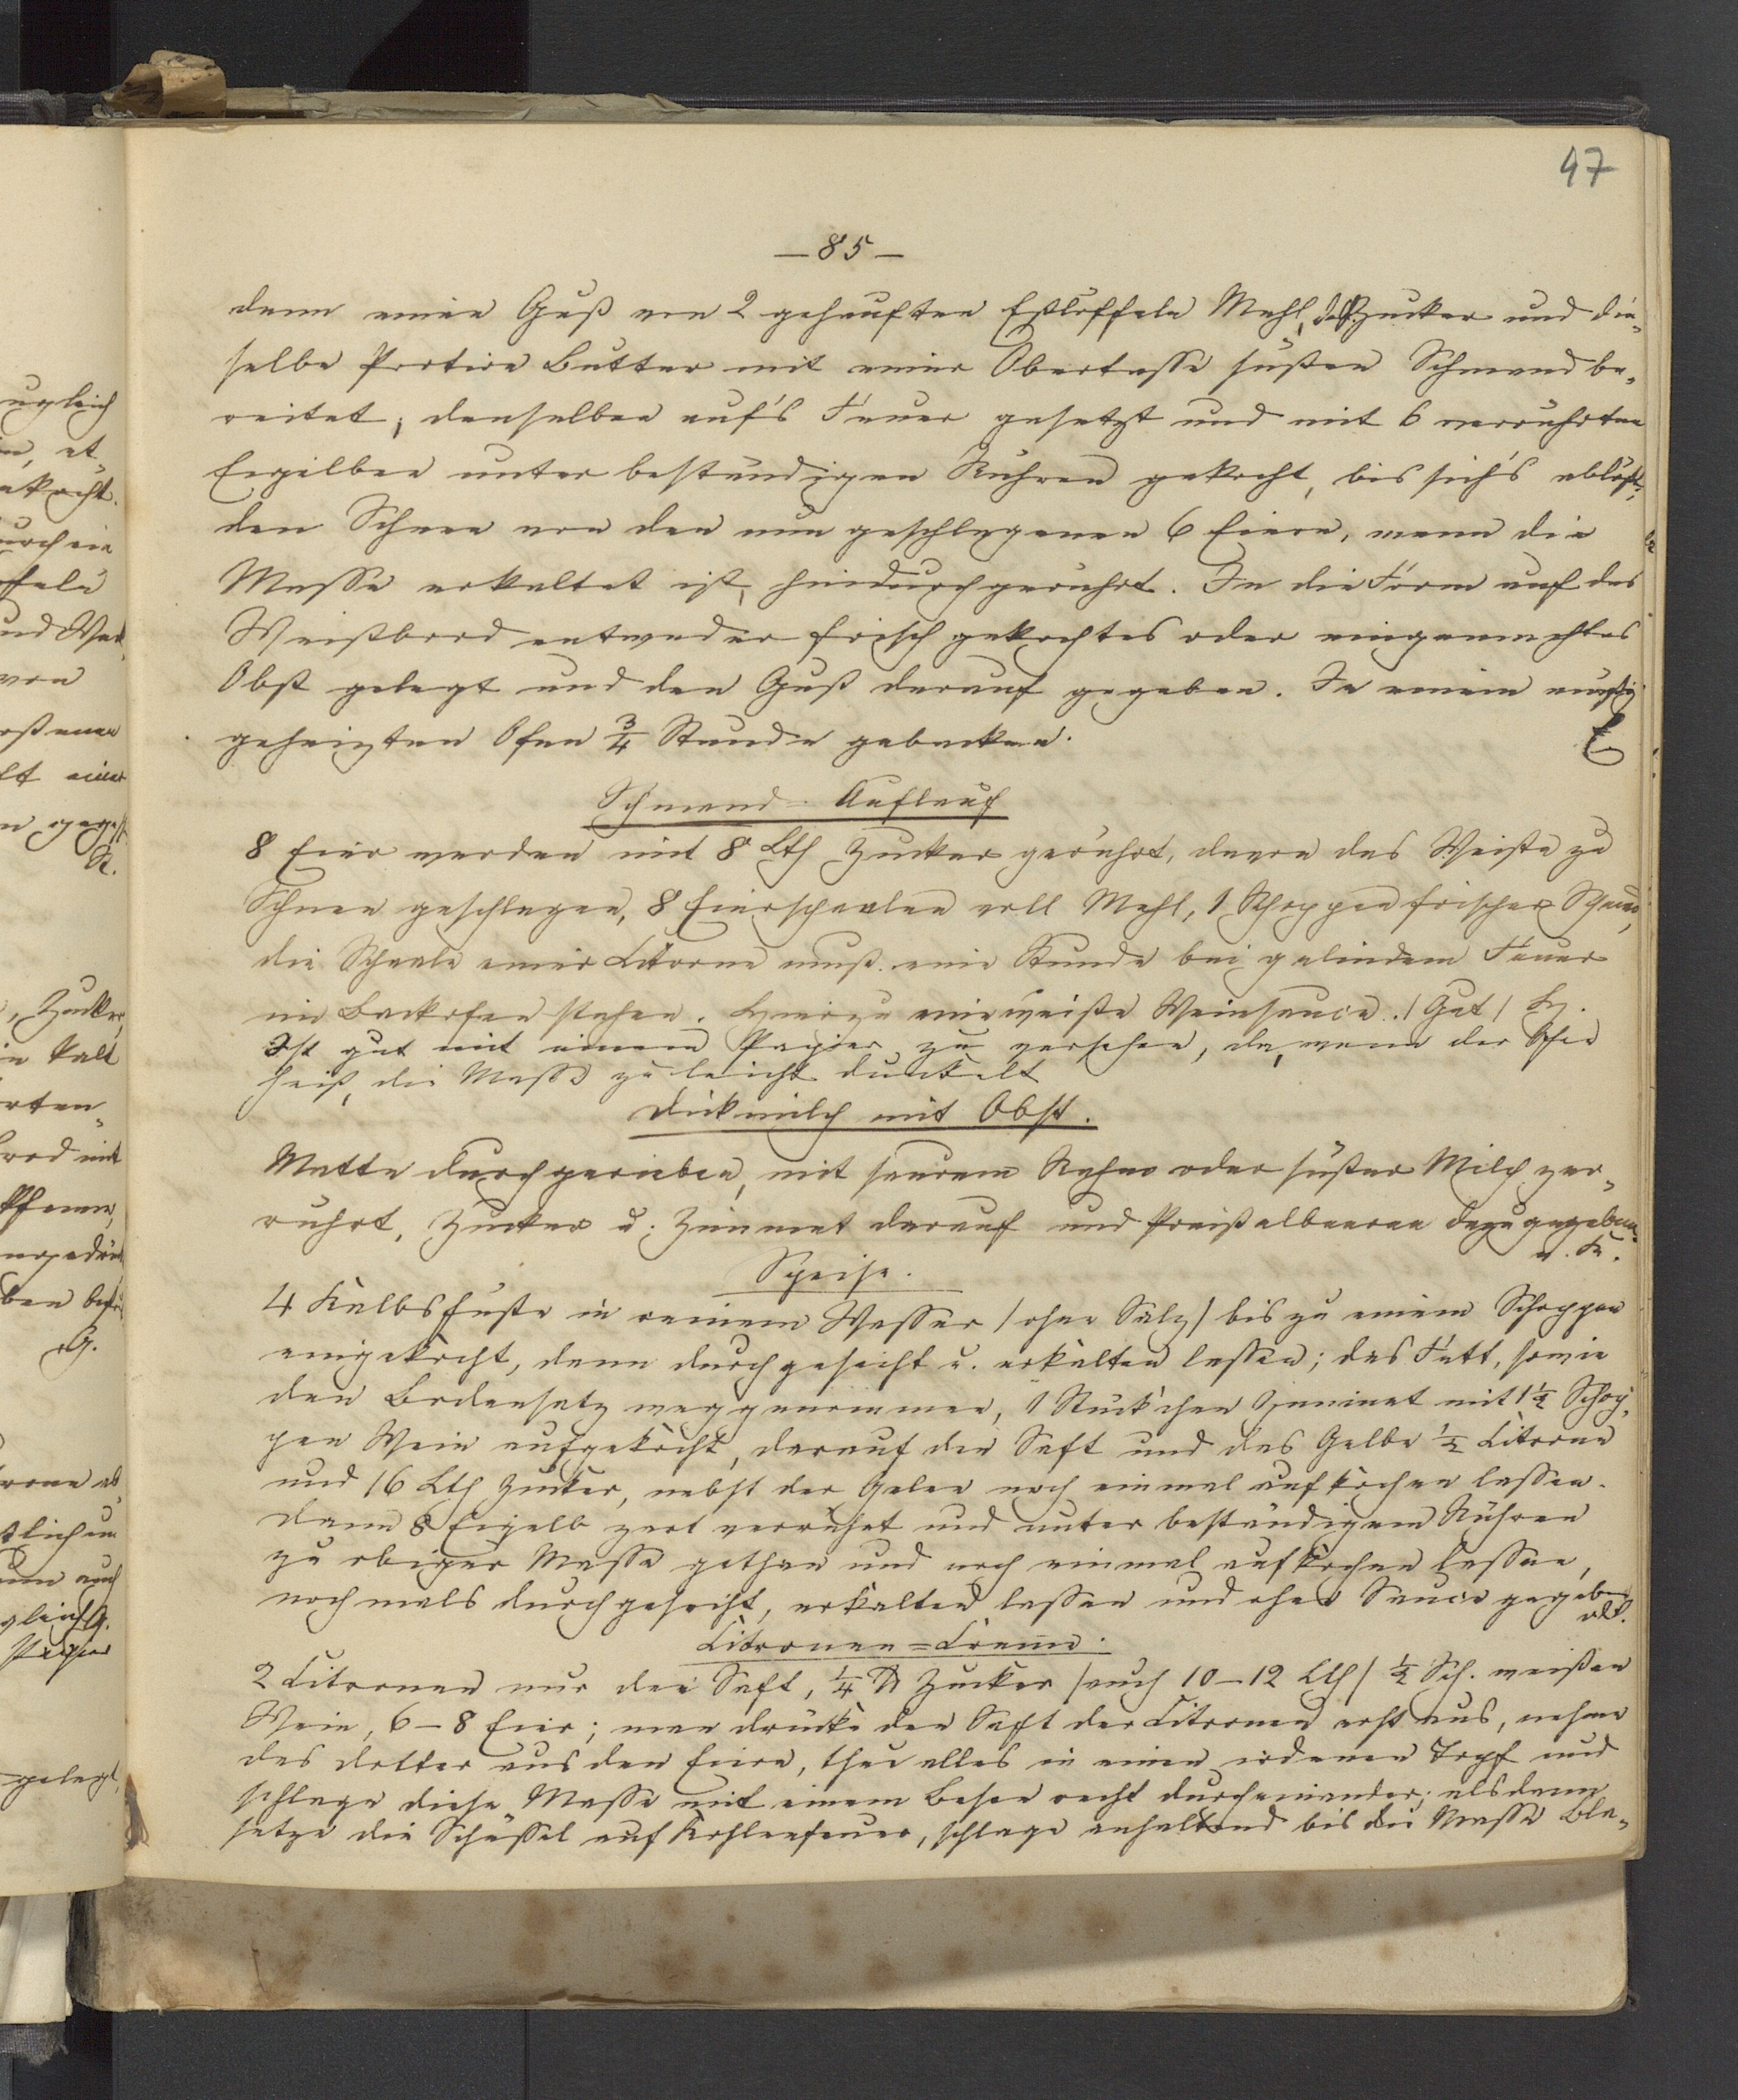 47
— 85 —
dann einen Guß von 2 gehäuften Eßlöffeln Mehl, Zucker und die-
selbe Portion Butter mit einer Obertasse süßen Schmand be-
reitet; denselben auf's Feuer gesetzt und mit 6 verrührten
Eigelben unter beständigem Rühren gekocht, bis sich's ablößt;
den Schnee von den nun geschlagenen 6 Eiern, wenn die
Masse erkaltet ist, hindurchgerührt. In die Form auf das
Weißbrod entweder frisch gekochtes oder eingemachtes
Obst gelegt und den Guß darauf gegeben. In einem mäßig
geheizten Ofen ¾ Stunde gebacken.
Schmand-Auflauf
8 Eier werden mit 8 Lth Zucker gerührt, davon das Weiße zu
Schnee geschlagen, 8 Eierschaalen voll Mehl, 1 Schoppen frischer Schmand,
die Schaale einer Citrone muß eine Stunde bei gelindem Feuer
im Backofen stehen. Hierzu eine weiße Weinsauce. /Gut/
Ist gut mit einem Papier zu versehen, da, wenn der Ofen
heiß, die Masse zu leicht dunkelt
Dickmilch mit Obst.
Matte durchgerieben, mit saurem Rahm oder süßer Milch ver-
rührt, Zucker u. Zimmet darauf und Preißelbeeren dazu gegeben.
Speise.
4 Kalbsfüße in reinem Wasser /ohne Salz/ bis zu einem Schoppen
eingekocht, dann durchgeseiht u. erkalten lassen; das Fett, sowie
den Bodensatz weggenommen, 1 Stückchen Zimmet mit 1½ Schop-
pen Wein aufgekocht, darauf den Saft und das Gelbe ½ Citrone
und 16 Lth Zucker, nebst der Gelee noch einmal aufkochen lassen.
Dann 8 Eigelb zart verrührt und unter beständigem Rühren
zu obiger Masse gethan und noch einmal aufkochen lassen,
nochmals durchgeseiht, erkalten lassen und ohne Sauce gegeben
Citronen=Creme.
2 Citronen nur den Saft, ¼ ℔ Zucker /auch 10–12 Lth/ ½ Sch. weißen
Wein, 6–8 Eier; man drücke den Saft der Citronen erst aus, nehme
das Dotter aus den Eiern, thue alles in einen irdenen Topf und
schlage diese Masse mit einem Besen recht durcheinander; alsdann
setze die Schüssel auf Kohlenfeuer, schlage anhaltend bis die Masse Bla-